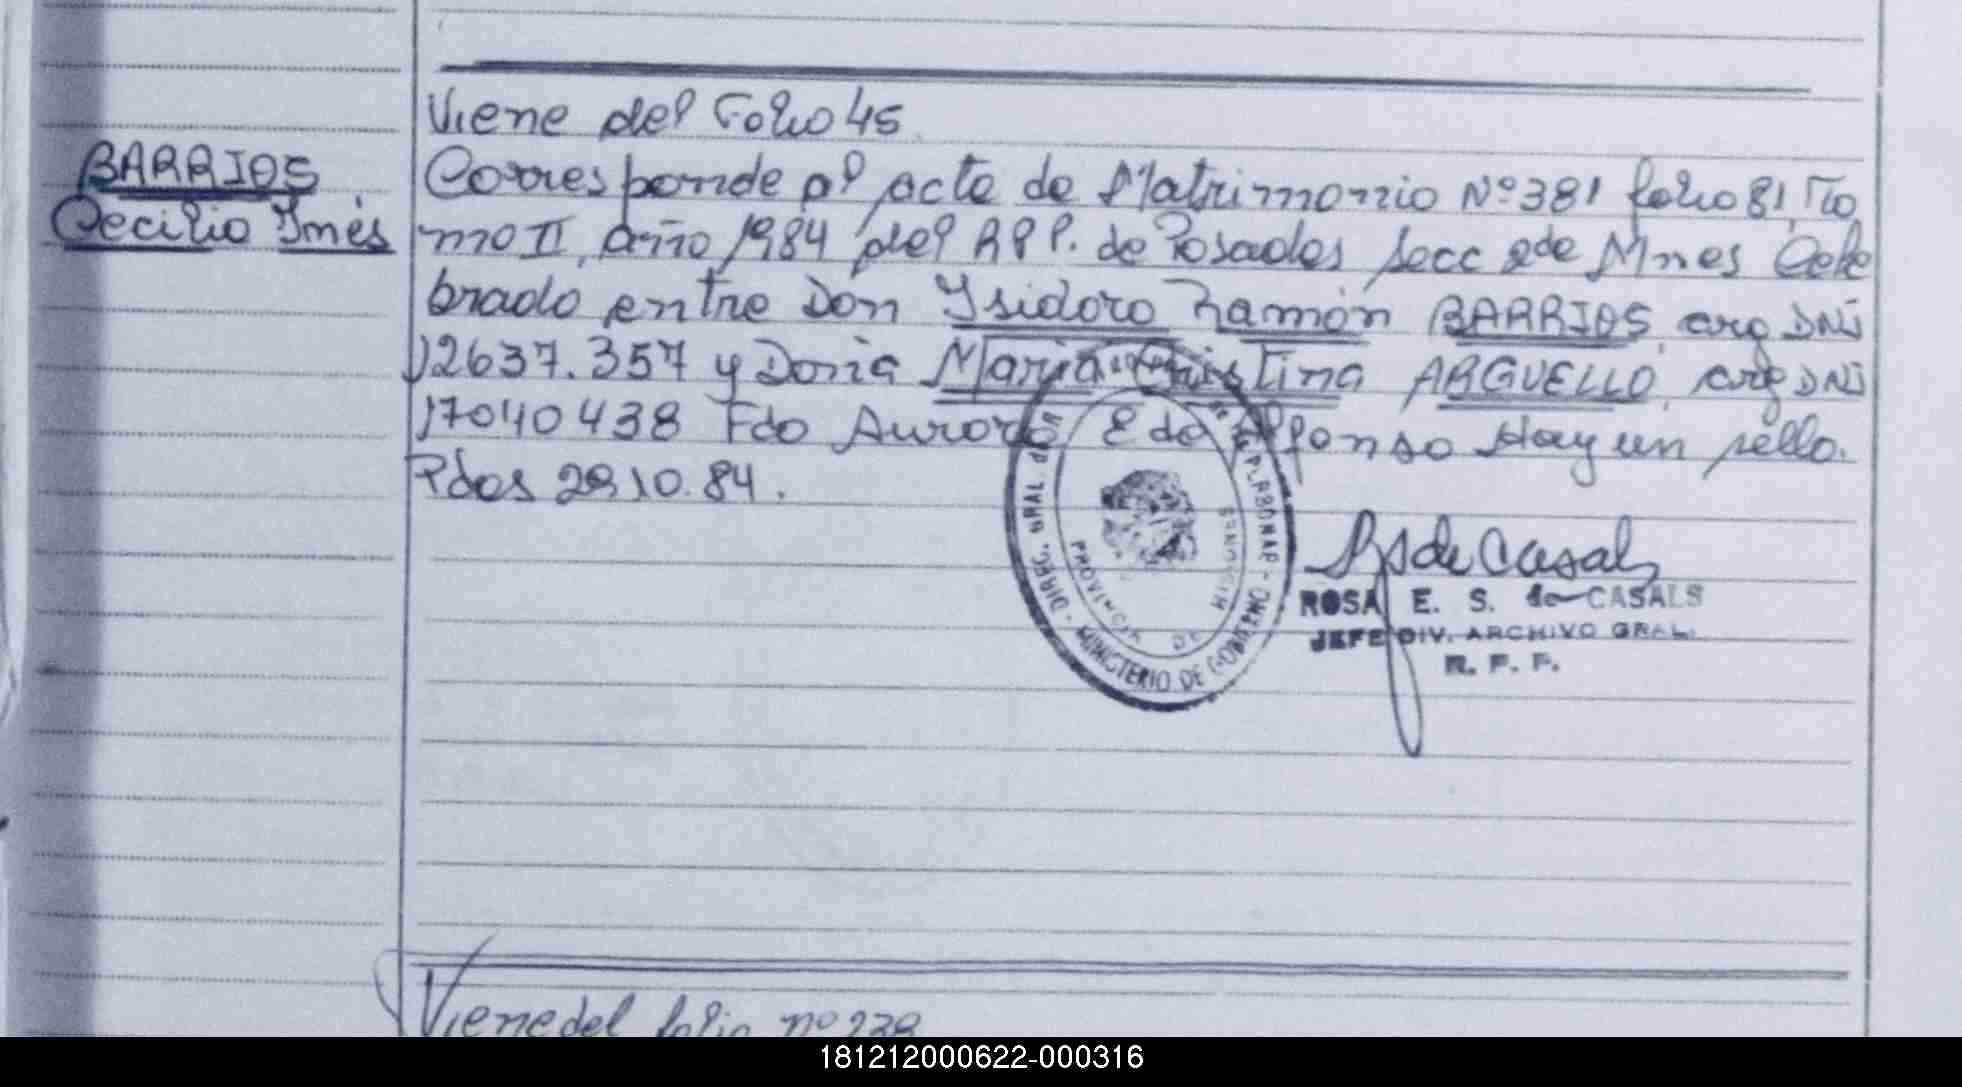 Viene del Folio 45
BARRIOS
Cecilio Inés
Corresponde al acta de Matrimonio Nº 381 folio 81, To
mo II, año 1984 del RPP. de Posadas secc 2da Mnes Cele
brado entre Don Isidoro Ramón BARRIOS, arg DNI
12637.357 y Doña Maria Cristina ARGUELLO, arg DNI
17040438 Fdo Aurora E de Alfonso Hay un sello.
Pdas 29.10.84.
DIREC. GRAL. del R.
MINISTERIO DE GOBIERNO
PROVINCIA DE MISIONES
RS de Casals
ROSA E. S. de CASALS
JEFE DIV. ARCHIVO GRAL.
R. P. P.
Viene del folio nº 238
181212000622-000316